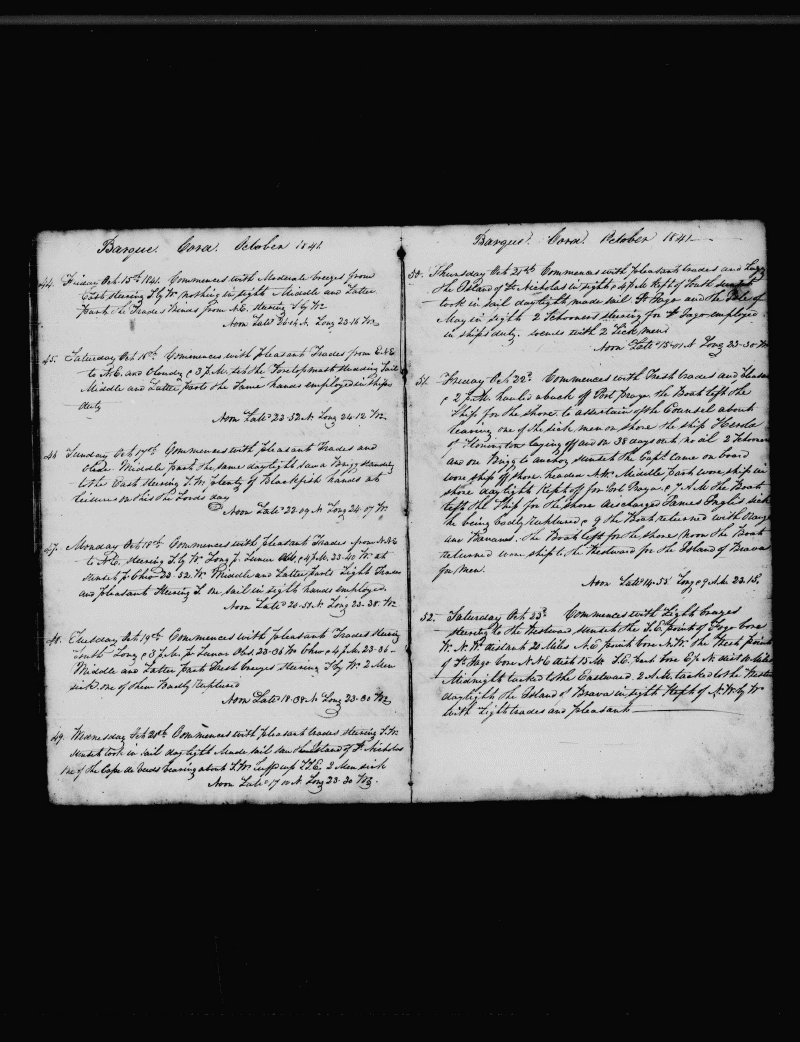 Barque Cora October 1841
44. Friday Oct 15th 1841. Commences with Moderate breezes from
East steering S by W nothing in sight Middle and Latter
part the Trades Bends from N.E. steering S by W
Noon Lat 26 N. Long 23-16 W
45. Saturday Oct 16th Commences with pleasant Trades from E.N.E
to N.E. and cloudy @ 3 P.M. set the Foretopmast studding sail
Middle and Latter parts the same hands employed in ships
duty
Noon Lat 23-52 N. Long 24-12 W
46 Sunday Oct 17th Commences with pleasant Trades and
Middle part the same daylight saw a Brigg standing
to the East steering S.W. plenty of Blackfish hands at
leisure on this the Lords day
Noon Lat 22-09 N Long 24-07 W
47. Monday Oct 18th Commences with pleasant Trades from N.N.E
to N.E. steering S by W Long p. Lunar Obs @ 4 P.M. 23-40 W at
sunset p. Chro 23-52 W. Middle and Latter parts Light Trades
and pleasant steering S. one sail in sight hands employed.
Noon Lat 20-51 N. Long 23-38. W
48. Tuesday Oct 19th Commences with pleasant Trades steering
South Long @ 3 P.M. p. Lunar Obs 23-36 W Chro @ 4 P.M. 23-36 -
Middle and Latter part Fresh breezes steering S by W. 2 Men
sick one of them Badly Ruptured
Noon Lat 18-38 N Long 23-30 W
49. Wednesday Oct 20th Commences with pleasant trades steering S.W.
sunset took in sail daylight Made sail saw the Island of St Nicholas
one of the Cape de Verds bearing about S.W. Luff up S.S.E. 2 Men sick
Noon Lat 17 N Long 23-30 W
Barque Cora October 1841
50. Thursday Oct 21st Commences with pleasant trades and hazy
the Island of St Nicholas in sight @ 4 P.M. Kept of South sunset
took in sail daylight, made sail St Jago and the Isle of
May in sight 2 Schooners steering for St Jago employed
in ships duty. 2 sick men
Noon Lat 15-01 N Long 23-30 W
51. Friday Oct 22d Commences with Fresh trades and pleasant
@ 2 P.M. hauled aback of Port praya the Boat left the
Ship for the shore, to ascertain of the Counsel about
leaving one of the sick men on shore the ship Herold
of Stonington laying off and on 38 days out no oil 2 schooners
and one Brigg to anchor sunset the Capt. came on board
wore ship of shore, headed N.N. Middle part wore ship in
shore daylight Kept off for Port Praya. @ 7 A.M. the Boat
left the Ship for the shore discharged James Inglis sick
he being badly ruptured @ 9 the Boat returned with Oranges
and Bananas. the Boat left for the shore, Noon the Boat
returned wore ship to the Westward for the Island of Brava
for men.
Noon Lat 14-53 Long @ 9 A.M. 23.15
52. Saturday Oct 23d Commences with Light breezes
steering to the Westward sunset the S.E. point of Fogo bore
W.N.W. distant 20 Miles N.E. point bore N.W. the West point
of St Jago bore N N E dist 15 M. S.E. part bore E p N. dist Miles
Midnight tacked to the Eastward. 2 A.M. tacked to the Westward
daylight the Island of Brava in sight Kept of N.W. by W
with Light trades and pleasant